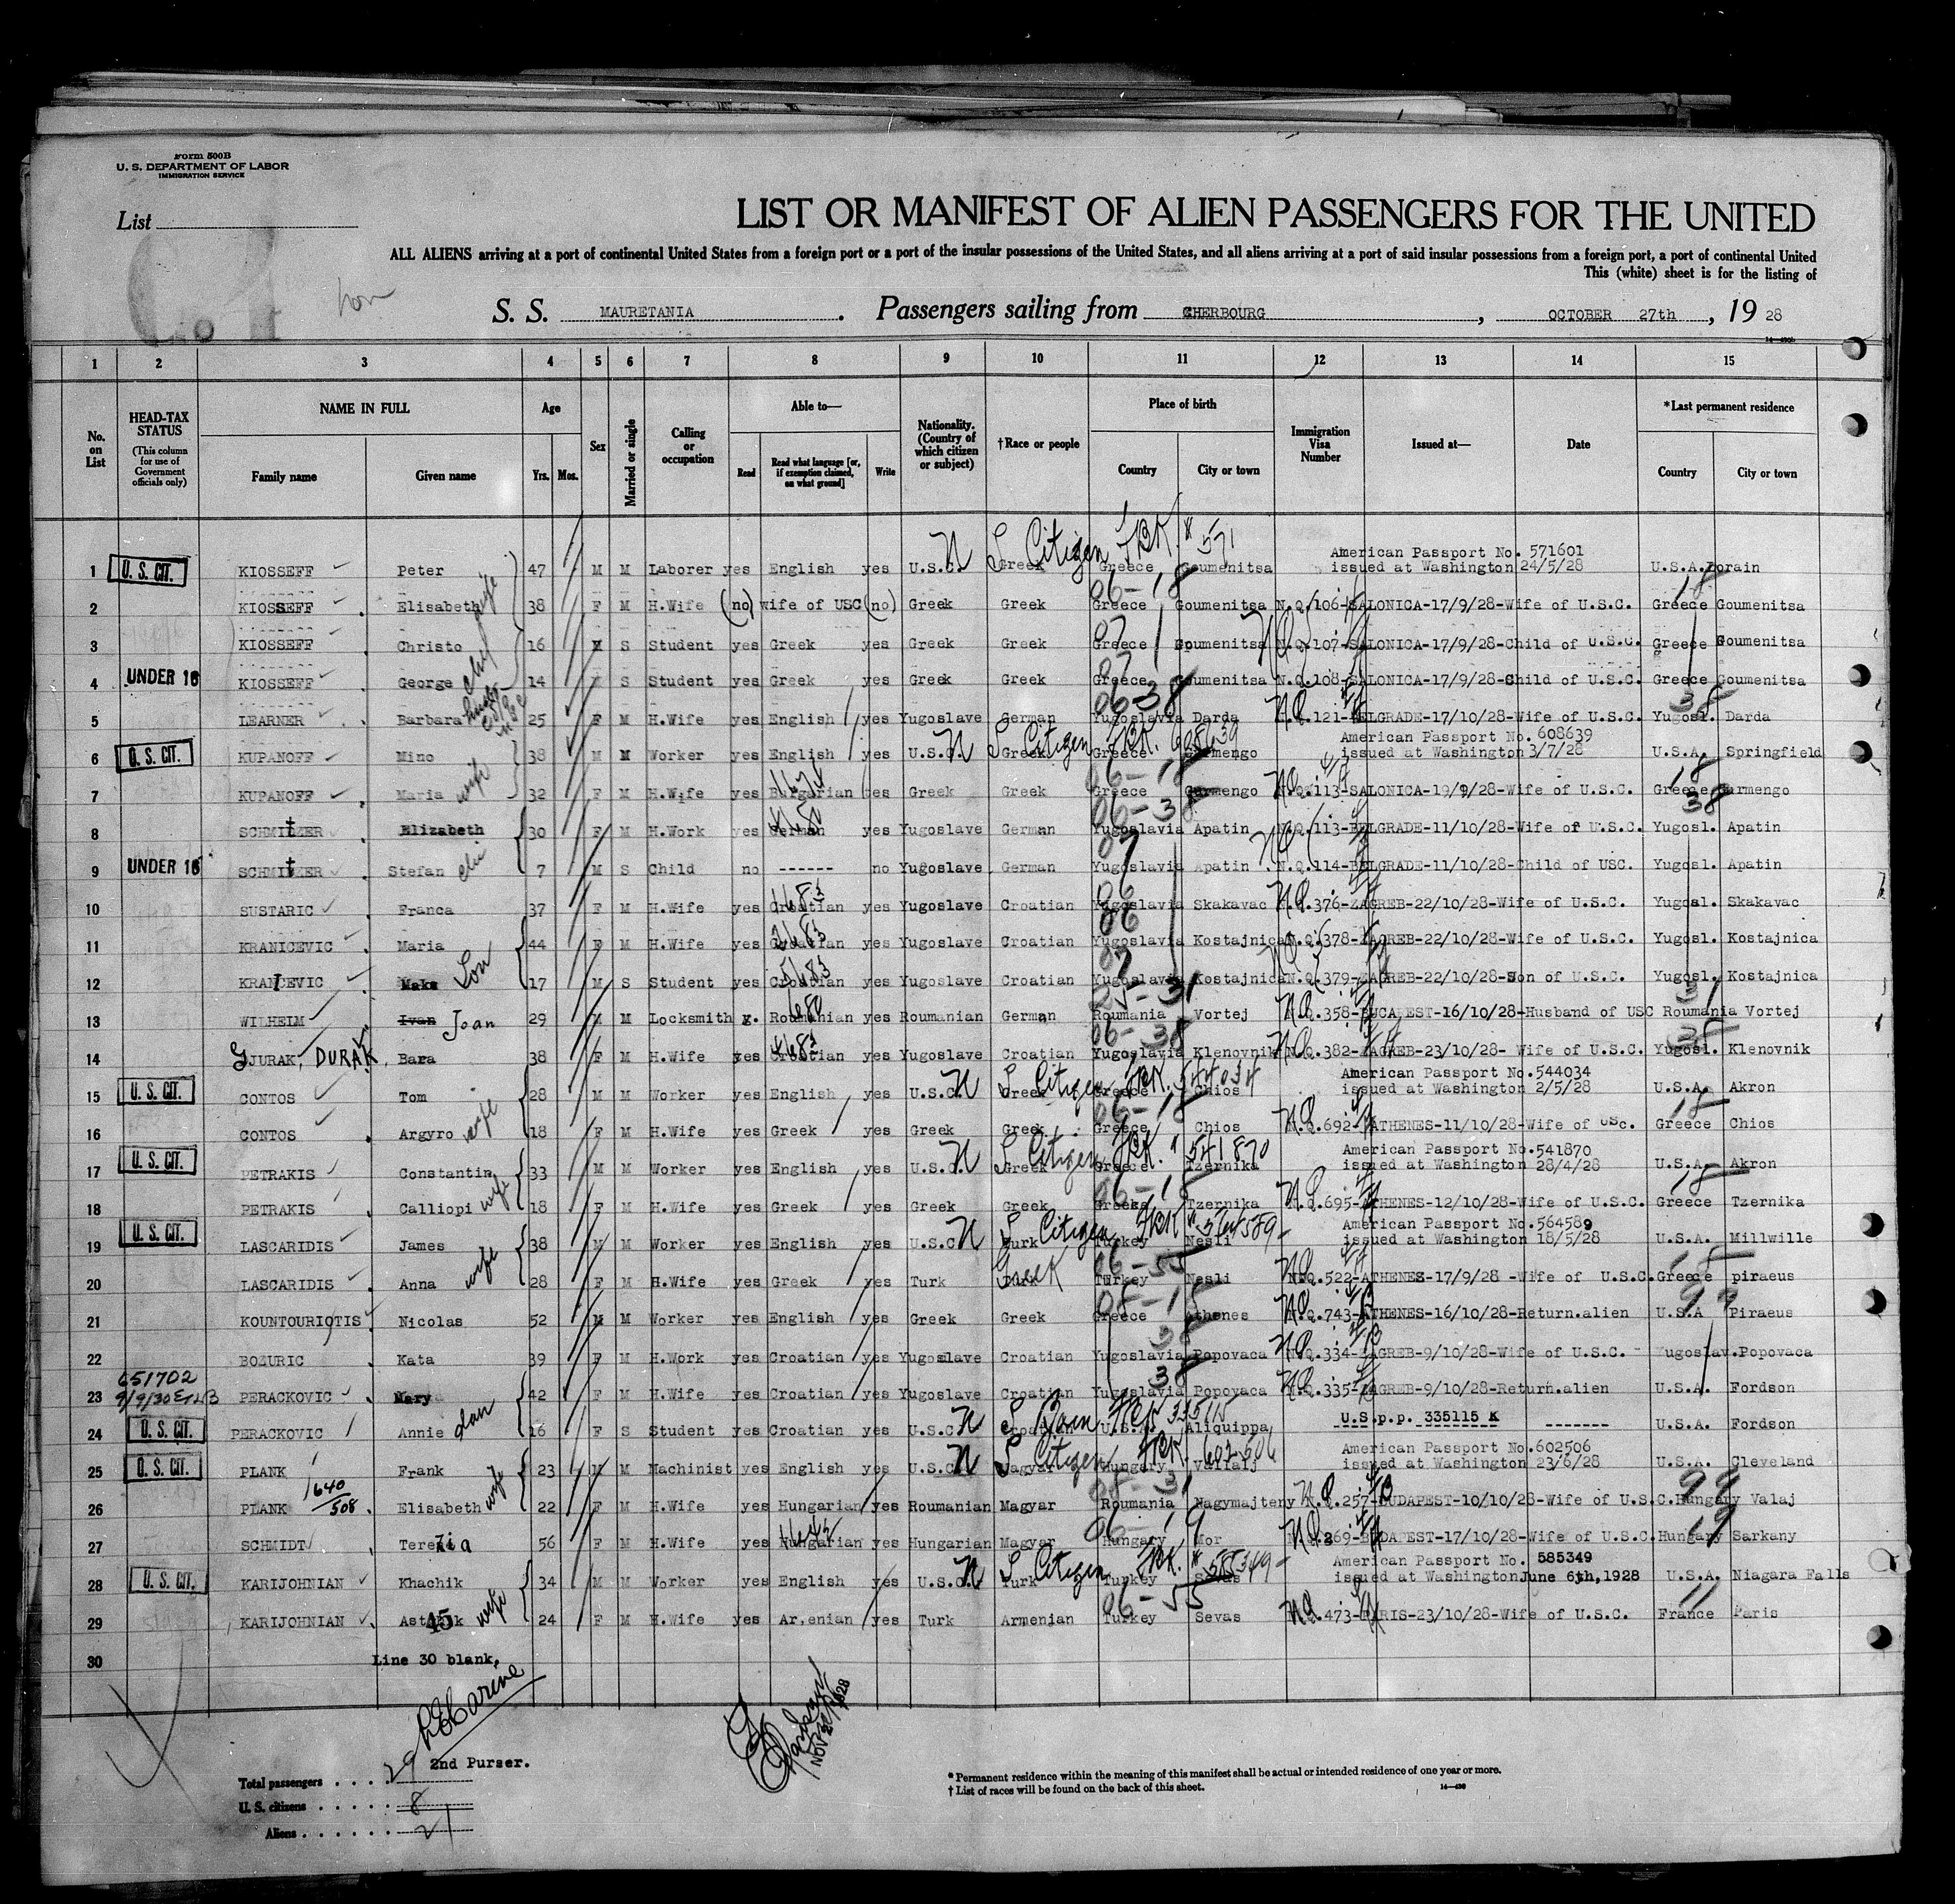 Form 500B
U. S. DEPARTMENT OF LABOR
IMMIGRATION SERVICE
List
LIST OR MANIFEST OF ALIEN PASSENGERS FOR THE UNITED
ALL ALIENS arriving at a port of continental United States from a foreign port or a port of the insular possessions of the United States, and all aliens arriving at a port of said insular possessions from a foreign port, a port of continental United
This (white) sheet is for the listing of
S. S. MAURETANIA. Passengers sailing from CHERBOURG, OCTOBER 27th, 19 28
1 2 3 4 5 6 7 8 9 10 11 12 13 14 15
No. on List
HEAD-TAX STATUS (This column for use of Government officials only)
NAME IN FULL Family name Given name
Age Yrs. Mos.
Sex
Married or single
Calling or occupation
Able to— Read Read what language [or, if exemption claimed, on what ground] Write
Nationality. (Country of which citizen or subject)
†Race or people
Place of birth Country City or town
Immigration Visa Number
Issued at—
Date
*Last permanent residence Country City or town
1 U. S. CIT. KIOSSEFF Peter 47 M M Laborer yes English yes U.S.C. Greek Greece Goumenitsa American Passport No. 571601 issued at Washington 24/5/28 U.S.A. Lorain
2 KIOSSEFF Elisabeth wife 38 F M H.Wife (no) wife of USC (no) Greek Greek Greece Goumenitsa N.Q. 106-SALONICA-17/9/28-Wife of U.S.C. Greece Goumenitsa
3 KIOSSEFF Christo 16 M S Student yes Greek yes Greek Greek Greece Goumenitsa N.Q. 107-SALONICA-17/9/28-Child of U.S.C. Greece Goumenitsa
4 UNDER 16 KIOSSEFF George 14 S Student yes Greek yes Greek Greek Greece Goumenitsa N.Q. 108-SALONICA-17/9/28-Child of U.S.C. Greece Goumenitsa
5 LEARNER Barbara 25 F M H.Wife yes English yes Yugoslave German Yugoslavia Darda N.Q. 121-BELGRADE-17/10/28-Wife of U.S.C. Yugosl. Darda
6 U. S. CIT. KUPANOFF Mino 38 M M Worker yes English yes U.S.C. Greek Greece Germengo American Passport No. 608639 issued at Washington 3/7/28 U.S.A. Springfield
7 KUPANOFF Maria wife 32 F M H.Wife yes Bulgarian yes Greek Greek Greece Germengo N.Q. 113-SALONICA-19/9/28-Wife of U.S.C. Greece Germengo
8 SCHMITZER Elizabeth 30 F M H.Work yes German yes Yugoslave German Yugoslavia Apatin N.Q. 113-BELGRADE-11/10/28-Wife of U.S.C. Yugosl. Apatin
9 UNDER 16 SCHMITZER Stefan 7 M S Child no ------ no Yugoslave German Yugoslavia Apatin N.Q. 114-BELGRADE-11/10/28-Child of USC. Yugosl. Apatin
10 SUSTARIC Franca 37 F M H.Wife yes Croatian yes Yugoslave Croatian Yugoslavia Skakavac N.Q. 376-ZAGREB-22/10/28-Wife of U.S.C. Yugosl. Skakavac
11 KRANICEVIC Maria 44 F M H.Wife yes Croatian yes Yugoslave Croatian Yugoslavia Kostajnica N.Q. 378-ZAGREB-22/10/28-Wife of U.S.C. Yugosl. Kostajnica
12 KRANICEVIC Maks Son 17 M S Student yes Croatian yes Yugoslave Croatian Yugoslavia Kostajnica N.Q. 379-ZAGREB-22/10/28-Son of U.S.C. Yugosl. Kostajnica
13 WILHEIM Ivan Joan 29 M M Locksmith y. Roumanian yes Roumanian German Roumania Vortej N.Q. 358-BUCAREST-16/10/28-Husband of USC Roumania Vortej
14 GJURAK, DURAK Bara 38 F M H.Wife yes Croatian yes Yugoslave Croatian Yugoslavia Klenovnik N.Q. 382-ZAGREB-23/10/28- Wife of U.S.C. Yugosl. Klenovnik
15 U. S. CIT. CONTOS Tom 28 M M Worker yes English yes U.S.C. Greek Greece Chios American Passport No. 544034 issued at Washington 2/5/28 U.S.A. Akron
16 CONTOS Argyro wife 18 F M H.Wife yes Greek yes Greek Greek Greece Chios N.Q. 692-ATHENES-11/10/28-Wife of USc. Greece Chios
17 U. S. CIT. PETRAKIS Constantin 33 M M Worker yes English yes U.S.C. Greek Greece Tzernika American Passport No. 541870 issued at Washington 28/4/28 U.S.A. Akron
18 PETRAKIS Calliopi wife 18 F M H.Wife yes Greek yes Greek Greek Greece Tzernika N.Q. 695-ATHENES-12/10/28-Wife of U.S.C. Greece Tzernika
19 U. S. CIT. LASCARIDIS James 38 M M Worker yes English yes U.S.C. Turk Turkey Nesli American Passport No. 564589 issued at Washington 18/5/28 U.S.A. Millwille
20 LASCARIDIS Anna wife 28 F M H.Wife yes Greek yes Turk Greek Turkey Nesli N.Q. 522-ATHENES-17/9/28 -Wife of U.S.C. Greece piraeus
21 KOUNTOURIOTIS Nicolas 52 M M Worker yes English yes Greek Greek Greece Athenes N.Q. 743-ATHENES-16/10/28-Return.alien U.S.A Piraeus
22 BOZURIC Kata 39 F M H.Work yes Croatian yes Yugoslave Croatian Yugoslavia Popovaca N.Q. 334-ZAGREB-9/10/28-Wife of U.S.C. Yugoslav. Popovaca
651702
23 9/9/30 PERACKOVIC Mary 42 F M H.Wife yes Croatian yes Yugoslave Croatian Yugoslavia Popovaca N.Q. 335-ZAGREB-9/10/28-Return.alien U.S.A. Fordson
24 U. S. CIT. PERACKOVIC Annie dau 16 F S Student yes Croatian yes U.S.C. Croatian U.S.A. Aliquippa U.S.p.p. 335115 K ------- U.S.A. Fordson
25 U. S. CIT. PLANK Frank 23 M M Machinist yes English yes U.S.C. Magyar Hungary Vallalj American Passport No. 602506 issued at Washington 23/6/28 U.S.A. Cleveland
26 PLANK 640/508 Elisabeth wife 22 F M H.Wife yes Hungarian yes Roumanian Magyar Roumania Nagymajteny N.Q. 257-BUDAPEST-10/10/28-Wife of U.S.C. Hungary Valaj
27 SCHMIDT Terezia 56 F M H.Wife yes Hungarian yes Hungarian Magyar Hungary Mor N.Q. 269-BUDAPEST-17/10/28-Wife of U.S.C. Hungary Sarkany
28 U. S. CIT. KARIJOHNIAN Khachik 34 M M Worker yes English yes U.S.C. Turk Turkey Sevas American Passport No. 585349 issued at Washington June 6th, 1928 U.S.A. Niagara Falls
29 KARIJOHNIAN wife 24 F M H.Wife yes Ar,enian yes Turk Armenian Turkey Sevas N.Q. 473-PARIS-23/10/28-Wife of U.S.C. France Paris
30 Line 30 blank.
2nd Purser.
Total passengers . . . . 29
U. S. citizens . . . . . 8
Aliens . . . . . . 21
*Permanent residence within the meaning of this manifest shall be actual or intended residence of one year or more.
†List of races will be found on the back of this sheet.